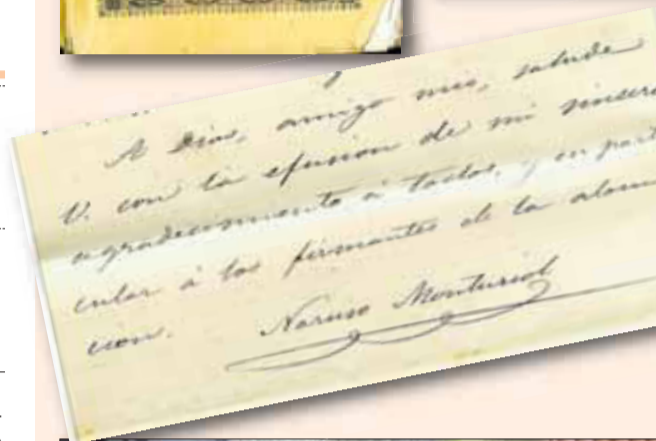 A Dios, amigo mio, salude
V. con la efusion de mi sincero
agradecimiento á todos, y en parti
cular á los firmantes de la
cion. Narciso Monturiol